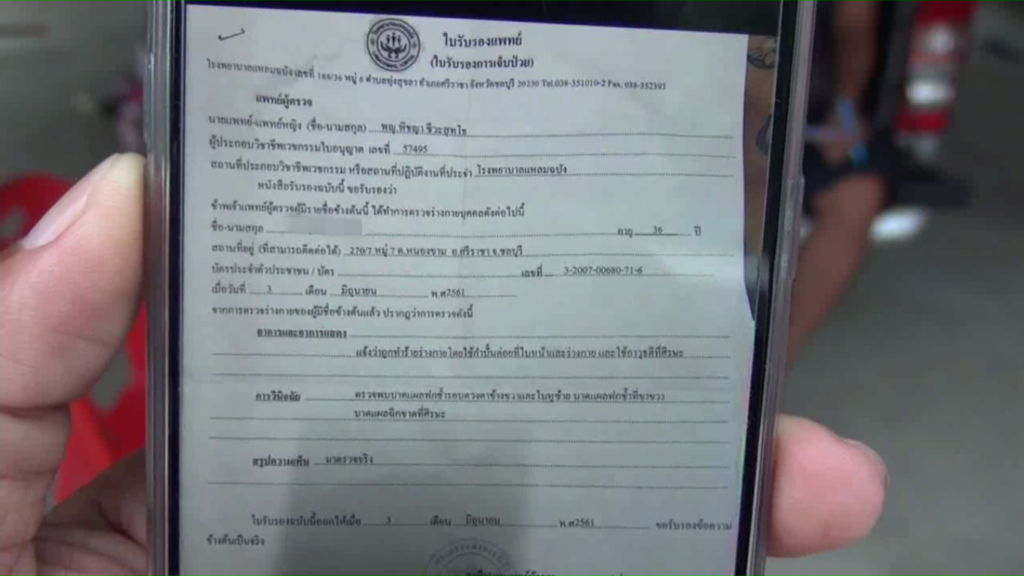 ใบรับรองแพทย์
(ใบรับรองการเจ็บป่วย)
โรงพยาบาลแหลมฉบัง เลขที่ 188/36 หมู่ 6 ตำบลทุ่งสุขลา อำเภอศรีราชา จังหวัดชลบุรี 20230 Tel.038-351010-2 Fax. 038-352395
แพทย์ผู้ตรวจ
นายแพทย์-แพทย์หญิง (ชื่อ-นามสกุล) พญ.พิชญา
ผู้ประกอบวิชาชีพเวชกรรมใบอนุญาต เลขที่ 57495
สถานที่ประกอบวิชาชีพเวชกรรม หรือสถานที่ปฏิบัติงานที่ประจำ โรงพยาบาลแหลมฉบัง
หนังสือรับรองฉบับนี้ ขอรับรองว่า
ข้าพเจ้าแพทย์ผู้ตรวจผู้มีรายชื่อข้างต้นนี้ ได้ทำการตรวจร่างกายบุคคลดังต่อไปนี้
ชื่อ-นามสกุล อายุ 36 ปี
สถานที่อยู่ (ที่สามารถติดต่อได้) 270/7 หมู่ 7 ต.หนองขาม อ.ศรีราชา จ.ชลบุรี
บัตรประจำตัวประชาชน / บัตร เลขที่ 3-2007-00680-71-6
เมื่อวันที่ 3 เดือน มิถุนายน พ.ศ2561
จากการตรวจร่างกายของผู้มีชื่อข้างต้นแล้ว ปรากฏว่าการตรวจดังนี้
อาการและอาการแสดง
แจ้งว่าถูกทำร้ายร่างกายโดยใช้กำปั้นต่อยที่ใบหน้าและร่างกาย และใช้อาวุธตีที่ศีรษะ
การวินิจฉัย ตรวจพบบาดแผลฟกช้ำรอบดวงตาข้างขวาและใบหูซ้าย บาดแผลฟกช้ำที่ขาขวา
บาดแผลฉีกขาดที่ศีรษะ
สรุปความเห็น มาตรวจจริง
ใบรับรองฉบับนี้ออกให้เมื่อ 3 เดือน มิถุนายน พ.ศ2561 ขอรับรองข้อความ
ข้างต้นเป็นจริง